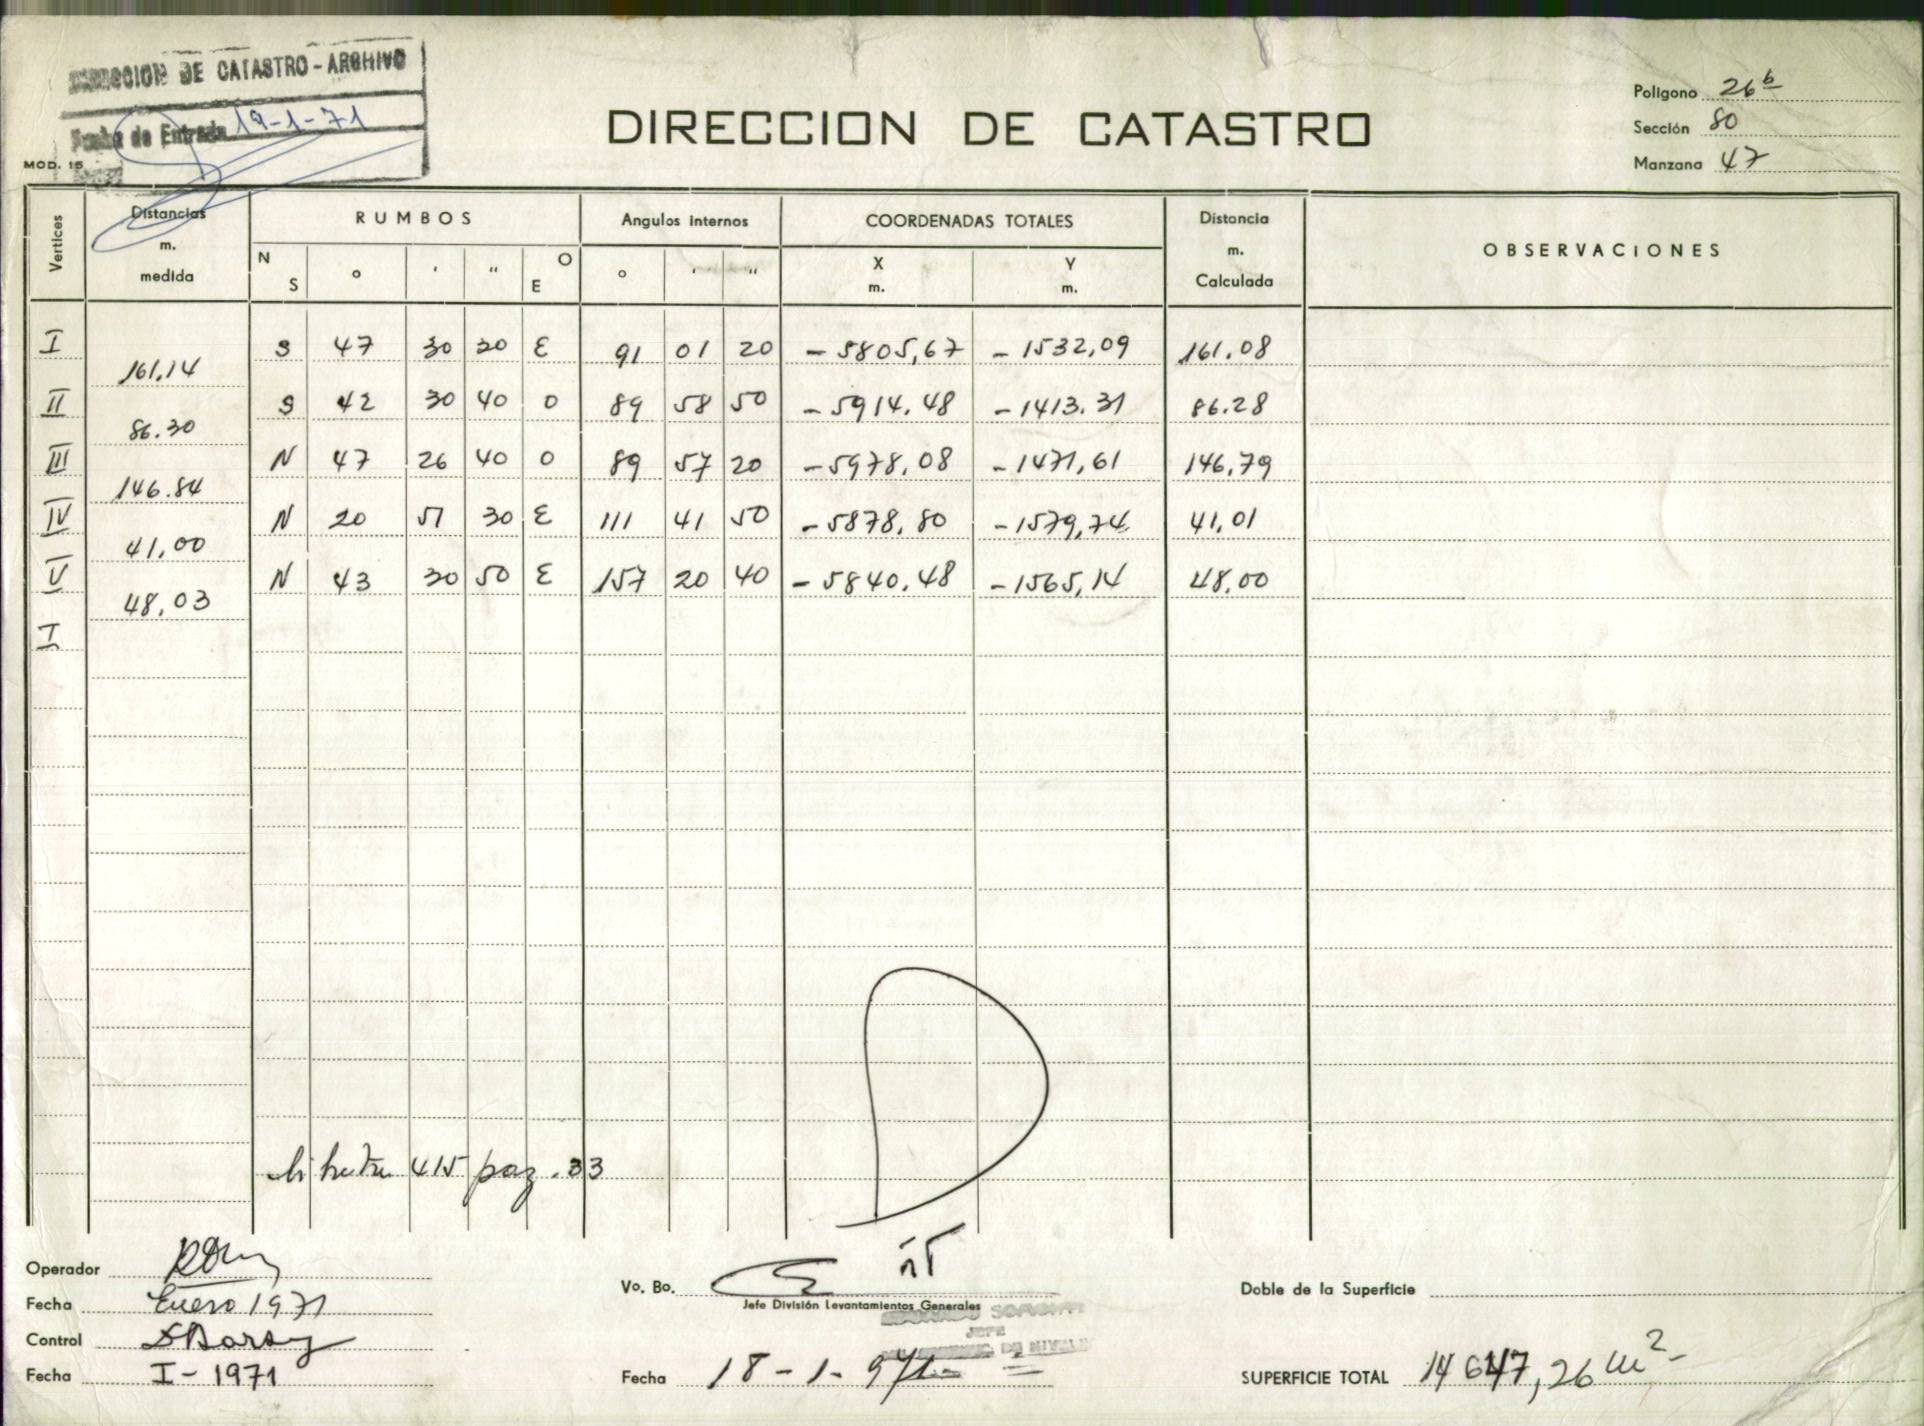 DIRECCION DE CATASTRO - ARCHIVO
Fecha de Entrada 19-1-71
MOD. 15
DIRECCION DE CATASTRO
Polígono 26 b
Sección 80
Manzana 47
Vertices
Distancias m. medida
RUMBOS
Angulos internos
COORDENADAS TOTALES
Distancia m. Calculada
OBSERVACIONES
N S ° ' " O E
° ' "
X m.
Y m.
I S 47 30 20 E 91 01 20 -5805,67 -1532,09 161.08
161,14
II S 42 30 40 O 89 58 50 -5914.48 -1413.31 86.28
86.30
III N 47 26 40 O 89 57 20 -5978,08 -1471,61 146,79
146.84
IV N 20 51 30 E 111 41 50 -5878,80 -1579,74 41,01
41,00
V N 43 30 50 E 157 20 40 -5840.48 -1565,14 48,00
48,03
I
415 pag. 33
Operador
Fecha Enero 1971
Control
Fecha I-1971
Vo. Bo.
Jefe División Levantamientos Generales
JEFE
Fecha 18-1-971
Doble de la Superficie
SUPERFICIE TOTAL 14647,26 m2